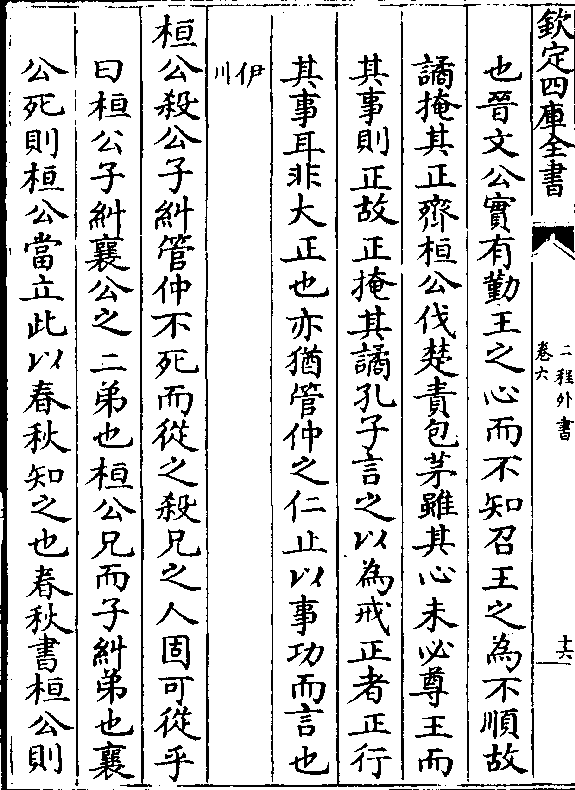 欽定四庫全書
二程外書
卷六
十六
也晉文公實有勤王之心而不知召王之為不順故
譎掩其正齊桓公伐楚責包茅雖其心未必尊王而
其事則正故正掩其譎孔子言之以為戒正者正行
其事耳非大正也亦猶管仲之仁止以事功而言也
伊川
桓公殺公子糾管仲不死而從之殺兄之人固可從乎
曰桓公子糾襄公之二弟也桓公兄而子糾弟也襄
公死則桓公當立此以春秋知之也春秋書桓公則